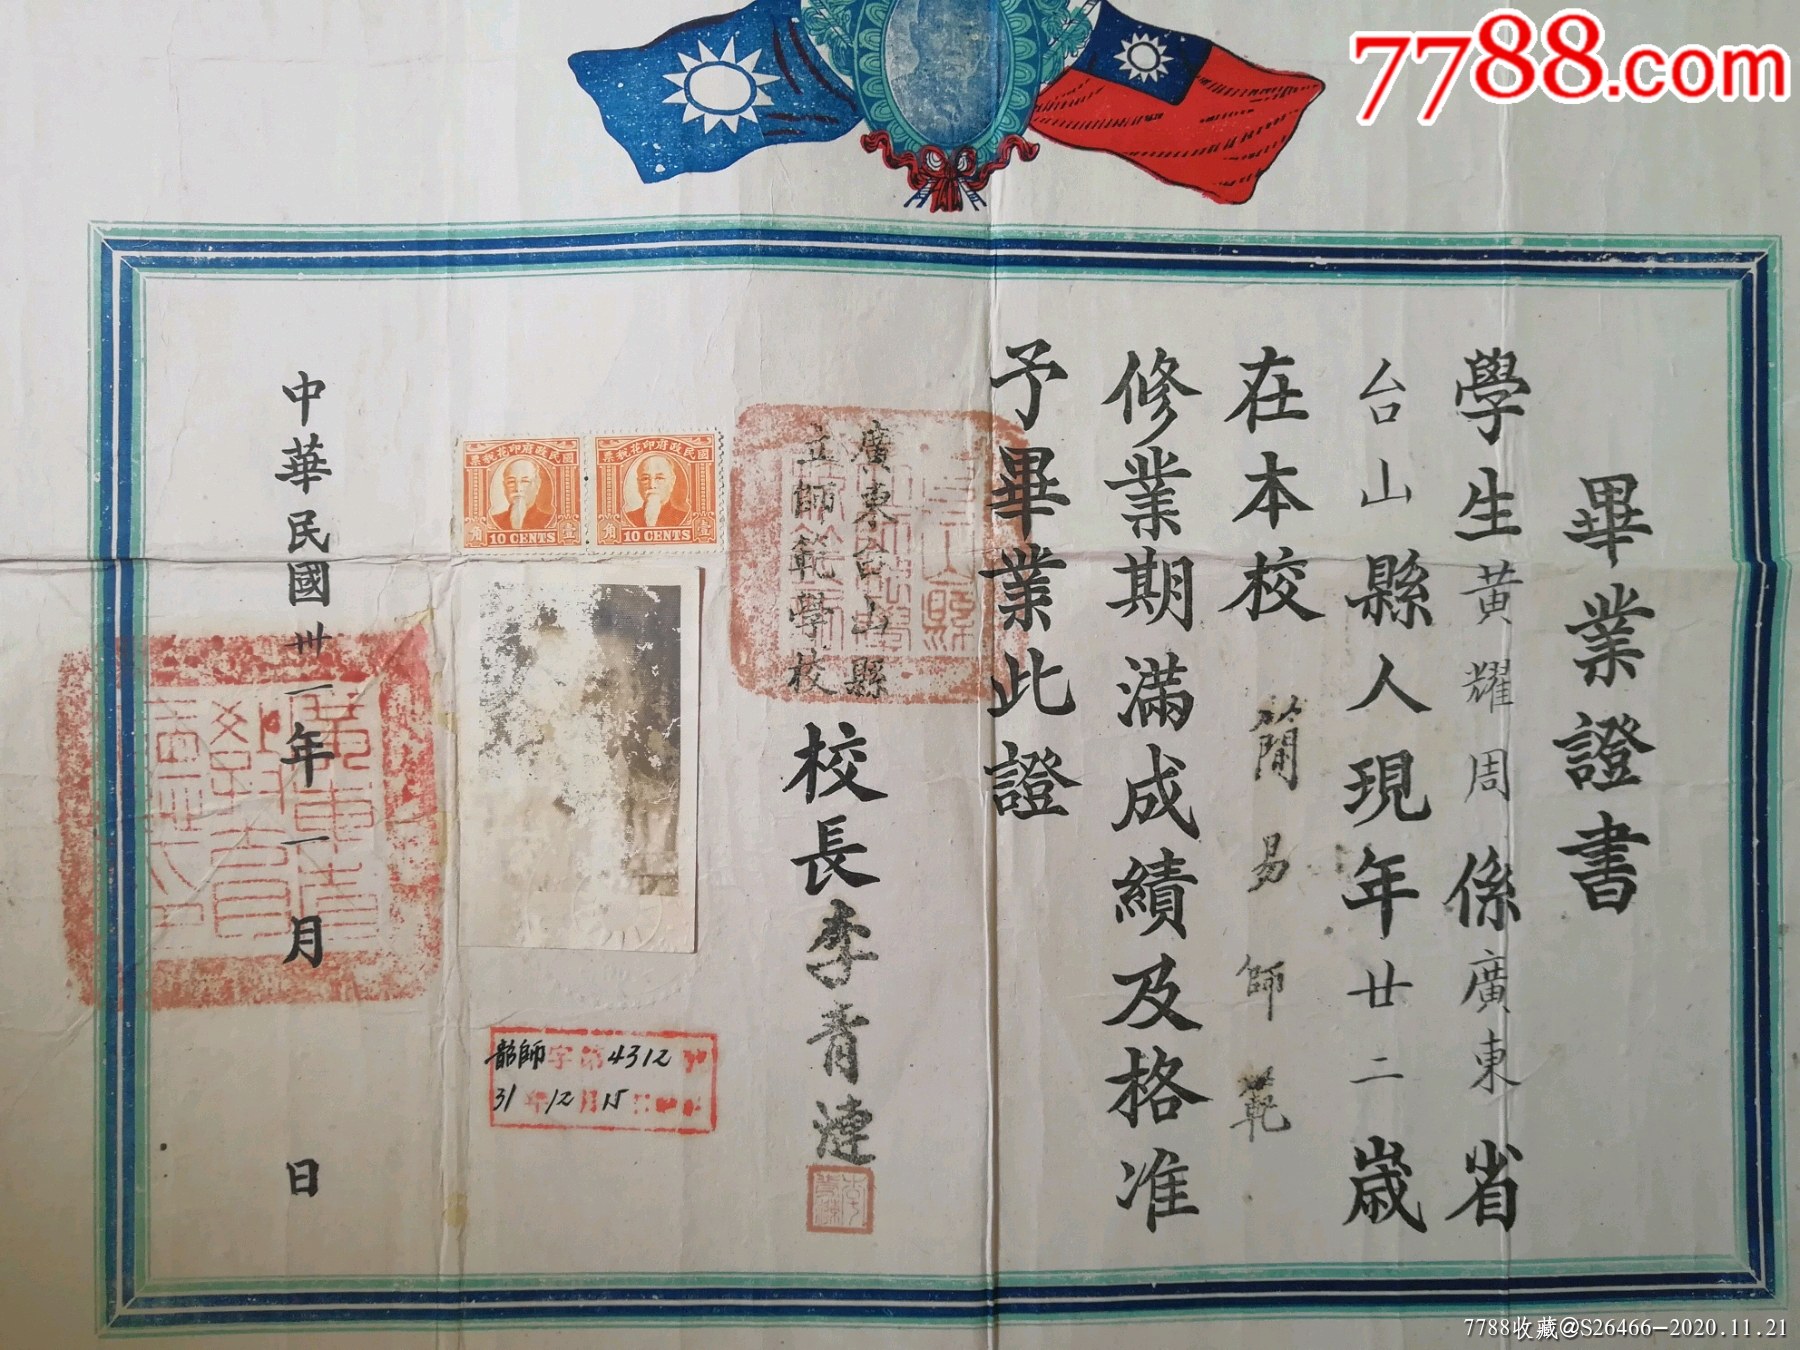 7788.com
畢業證書
學生黃耀周係廣東省
台山縣人現年廿二歲
在本校簡易師範
修業期滿成績及格准
予畢業此證
廣東台山縣
立師範學校
校長李青漣
國民政府印花稅票
壹角
10 CENTS
國民政府印花稅票
壹角
10 CENTS
韶師字第4312號
31年12月15日
中華民國卅一年一月 日
7788收藏@S26466-2020.11.21